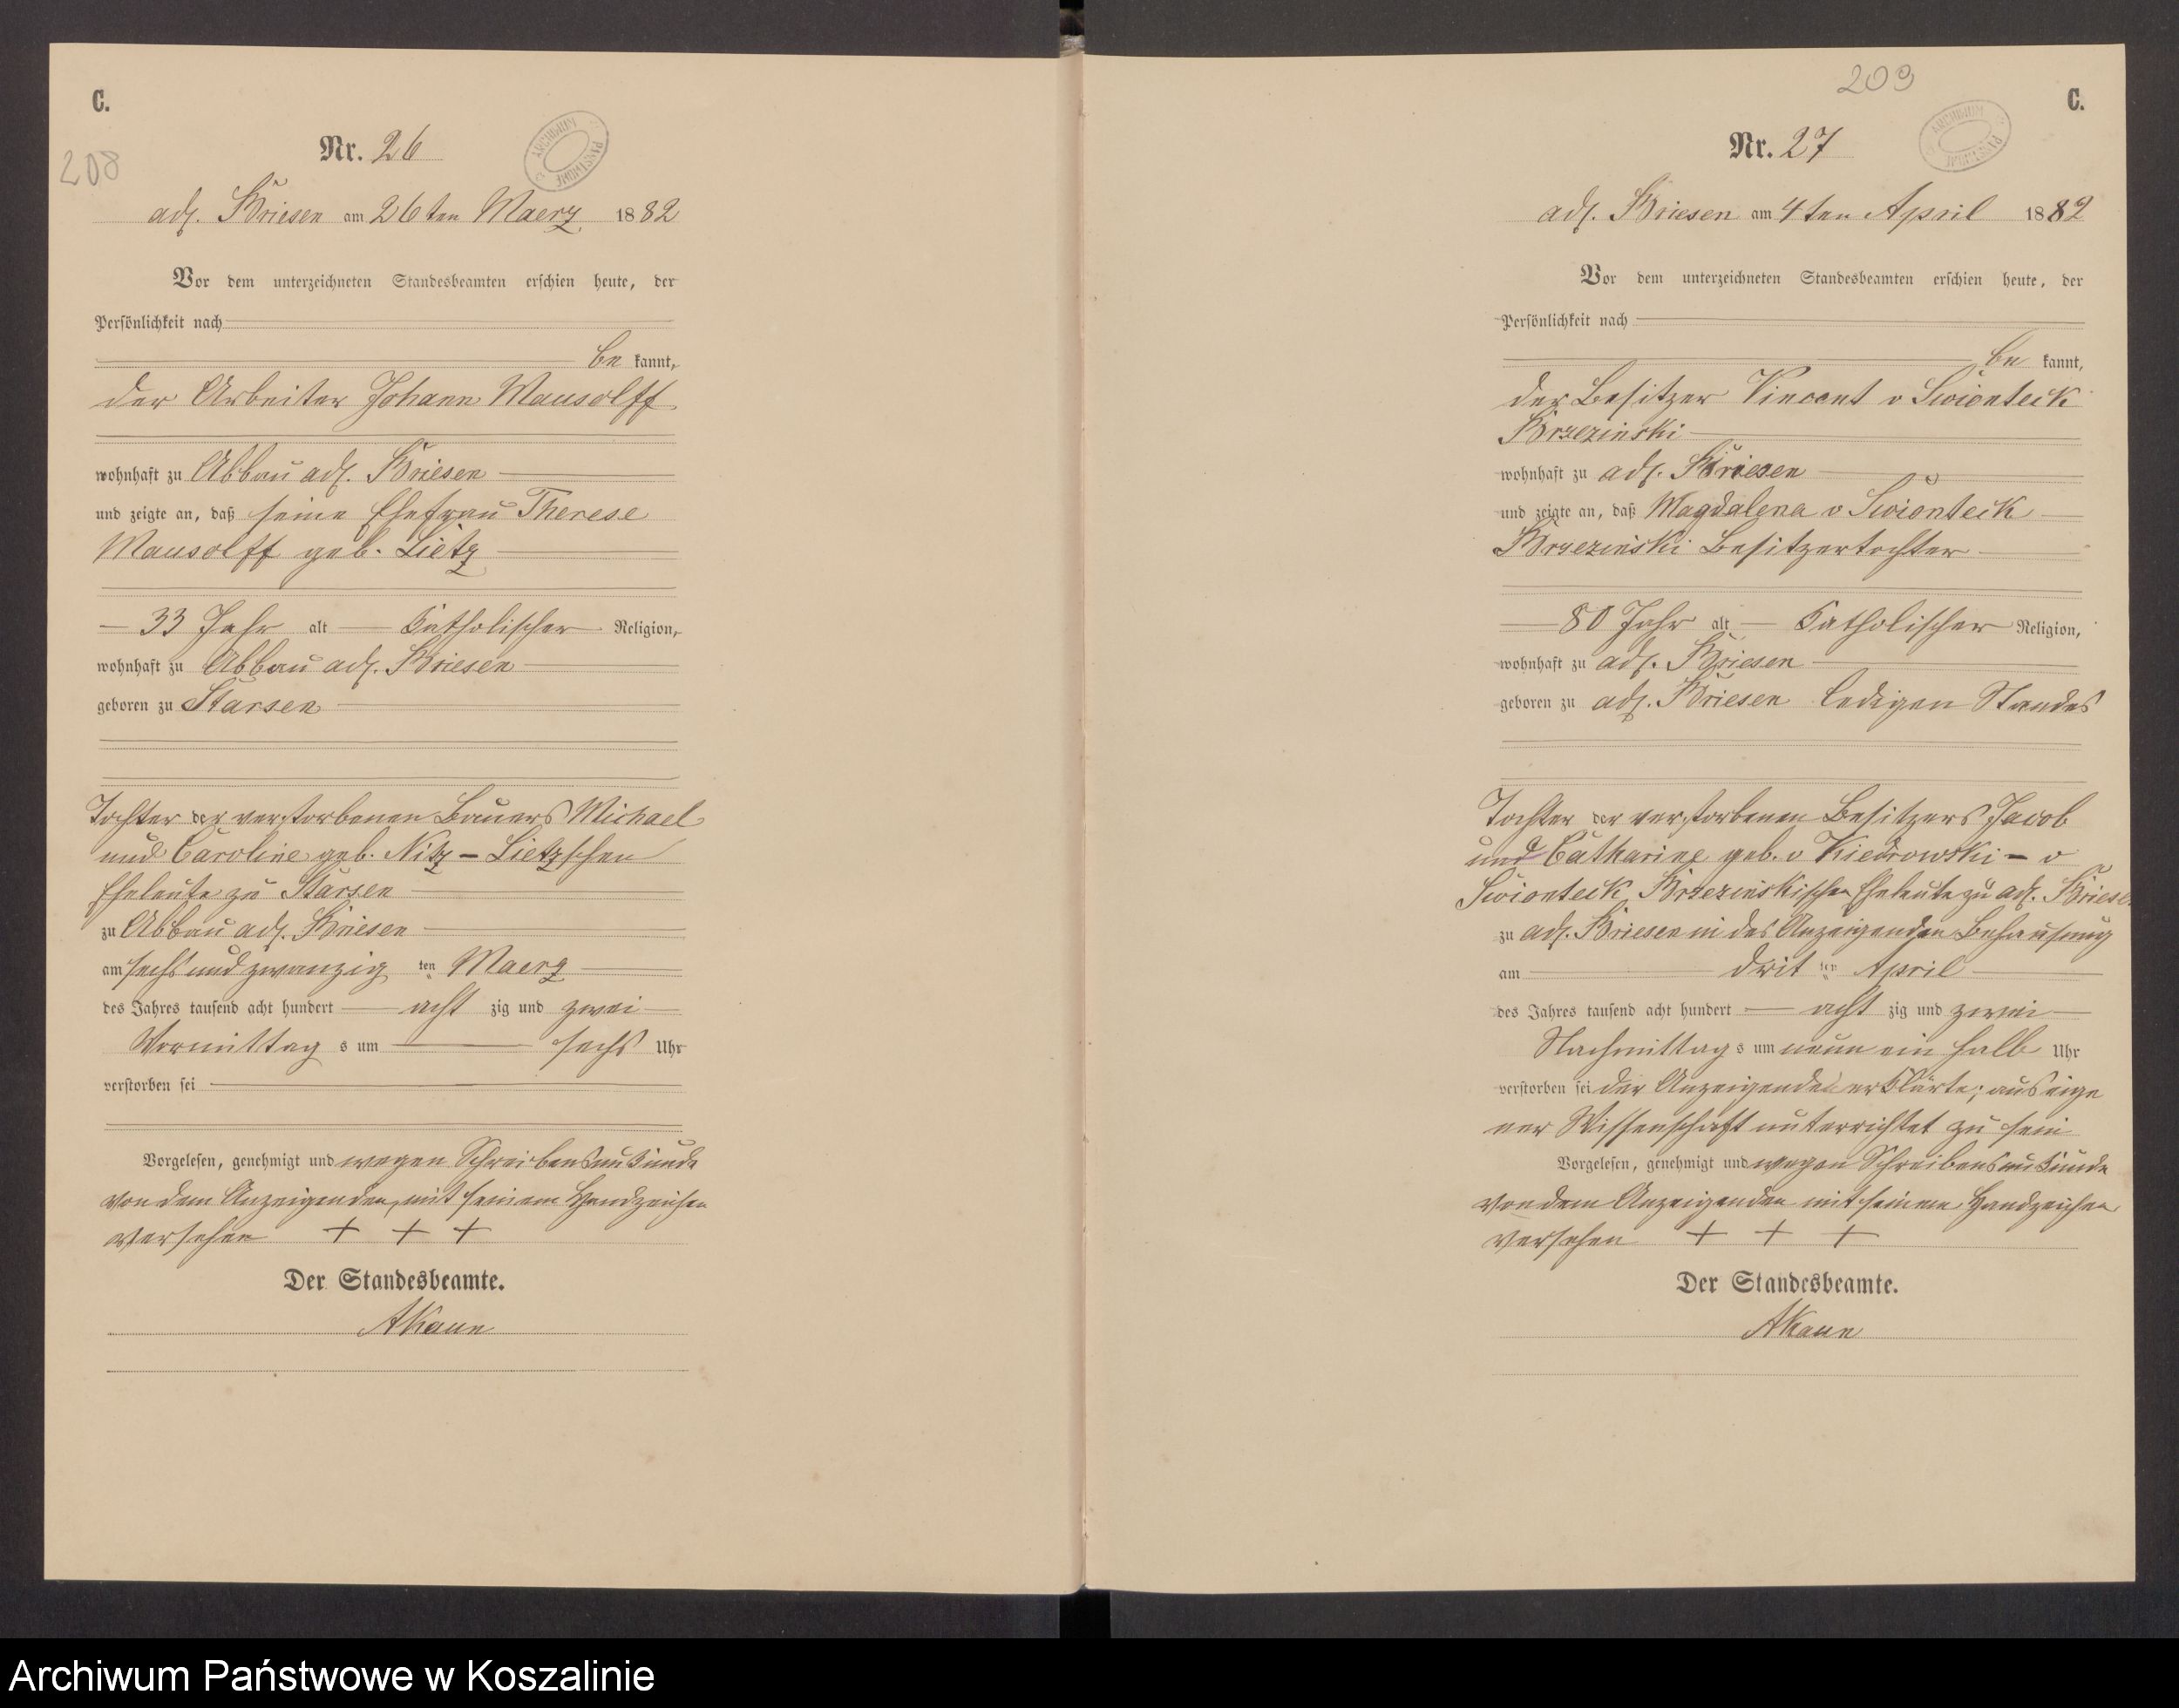 C.
208
Nr. 26
ARCHIWUM PAŃSTWOWE
adl. Briesen am 26ten Maerz 1882
Vor dem unterzeichneten Standesbeamten erschien heute, der
Persönlichkeit nach
be kannt,
der Arbeiter Johann Mausolff
wohnhaft zu Abbau adl. Briesen
und zeigte an, daß seine Ehefrau Therese
Mausolff geb. Lietz
33 Jahr alt Katholischer Religion,
wohnhaft zu Abbau adl. Briesen
geboren zu Starsen
Tochter der verstorbenen Bauers Michael
und Caroline geb. Nitz - Lietzschen
Eheleute zu Starsen
zu Abbau adl. Briesen
am sechs und zwanzig ten Maerz
des Jahres tausend acht hundert acht zig und zwei
Vormittag s um sechs Uhr
verstorben sei
Vorgelesen, genehmigt und wegen Schreibensunkunde
von dem Anzeigenden mit seinem Handzeichen
versehen + + +
Der Standesbeamte.
AKaun
209
C.
Nr. 27
ARCHIWUM PAŃSTWOWE
adl. Briesen am 4ten April 1882
Vor dem unterzeichneten Standesbeamten erschien heute, der
Persönlichkeit nach
be kannt,
der Besitzer Vincent v Swionteck
Brzezinski
wohnhaft zu adl. Briesen
und zeigte an, daß Magdalena v Swionteck
Brzezinski Besitzertochter
80 Jahr alt Katholischer Religion,
wohnhaft zu adl. Briesen
geboren zu adl. Briesen ledigen Standes
Tochter der verstorbenen Besitzers Jacob
und Catharine geb. v Kiedrowski - v
Swionteck Brzezinskischen Eheleute zu adl. Briesen
zu adl. Briesen in des Anzeigenden Behausung
am drit ten April
des Jahres tausend acht hundert acht zig und zwei
Nachmittag s um neun ein halb Uhr
verstorben sei der Anzeigende erklärte; aus eige
ner Wissenschaft unterrichtet zu sein
Vorgelesen, genehmigt und wegen Schreibensunkunde
von dem Anzeigenden mit seinem Handzeichen
versehen + + +
Der Standesbeamte.
AKaun
Archiwum Państwowe w Koszalinie